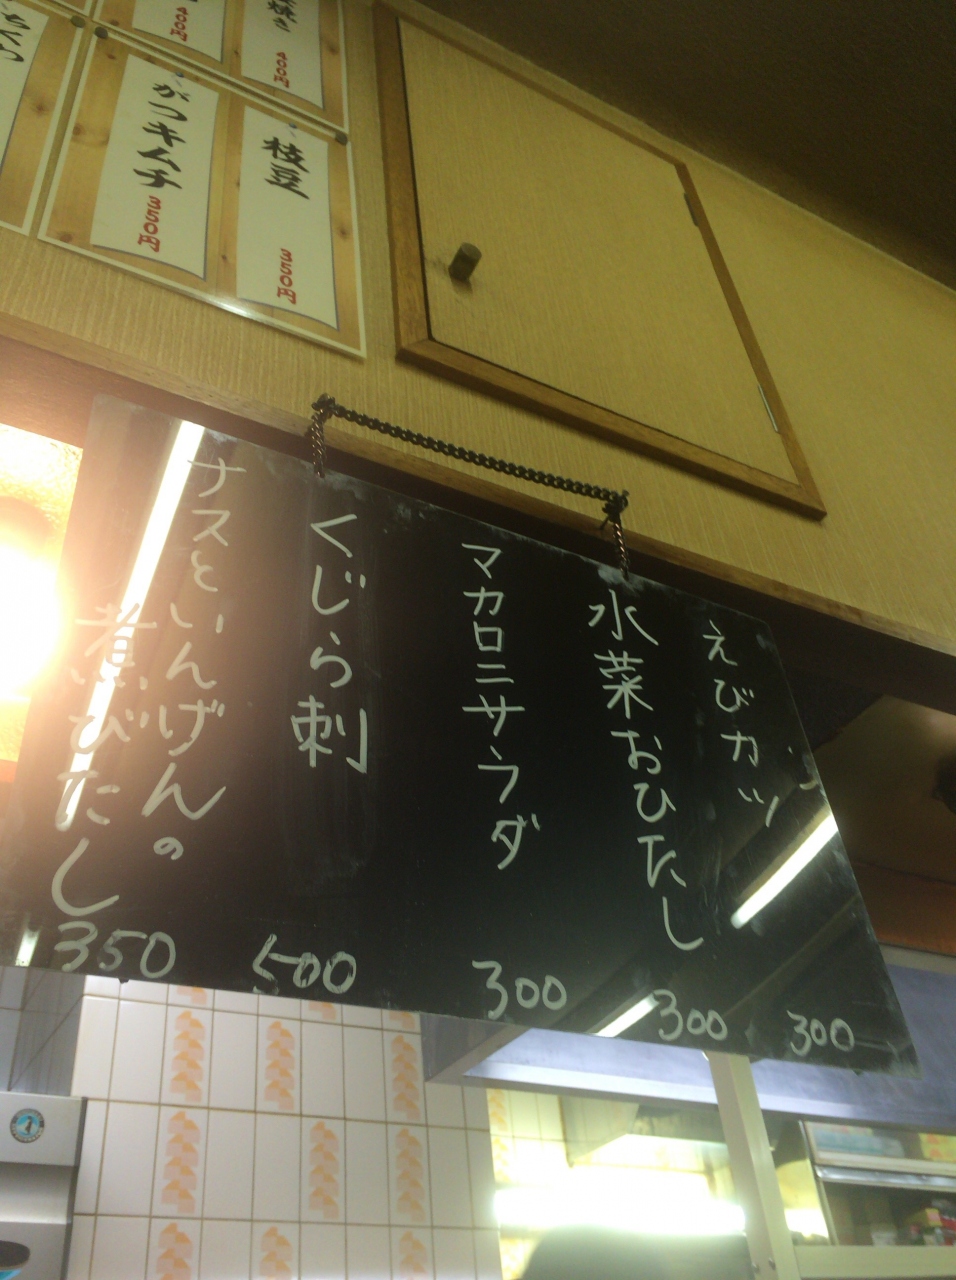 400円
焼き
400円
がつキムチ
350円
枝豆
350円
えびカツ
300
水菜おひたし
300
マカロニサラダ
300
くじら刺
500
ナスといんげんの
煮びたし
350